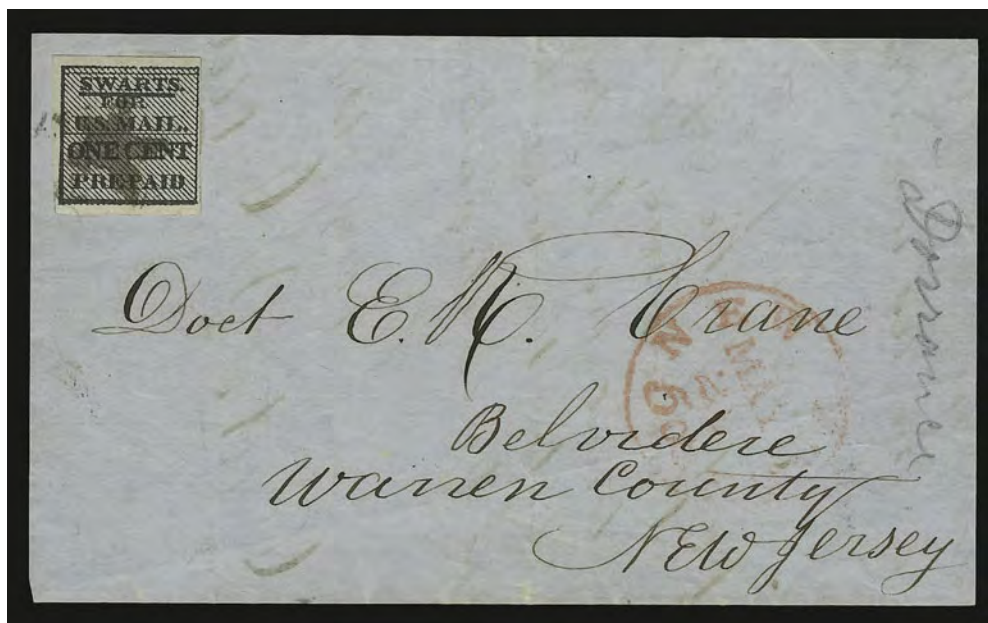 SWARTS.
FOR
U.S. MAIL.
ONE CENT
PRE-PAID
Doct E. R. Crane
Belvidere
Warren County
New Jersey
NEW
5c